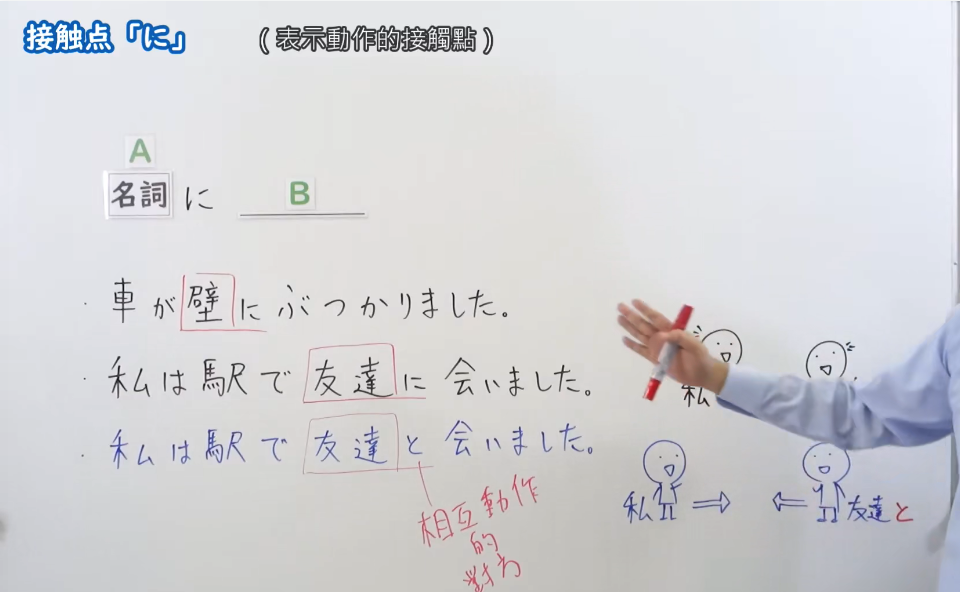 接触点「に」 (表示動作的接觸點)
A
名詞 に B
・車が壁にぶつかりました。
・私は駅で友達に会いました。
・私は駅で友達と会いました。
相互動作
的
對方
私
私 友達と